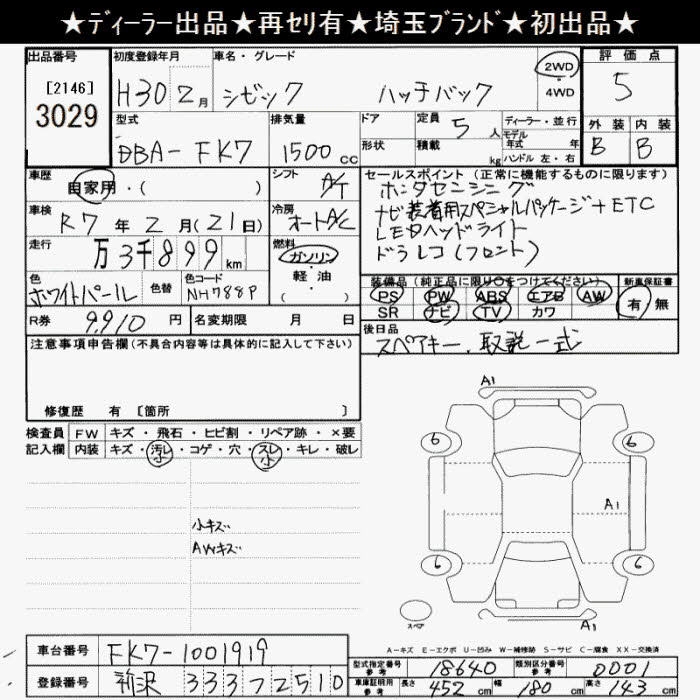 ★ディーラー出品★再セリ有★埼玉ブランド★初出品★
出品番号
[2146]
3029
初度登録年月
H30 2月
車名・グレード
シビック ハッチバック
2WD
・
4WD
評価点
5
型式
DBA-FK7
排気量
1500cc
ドア
形状
定員
5人
積載
kg
ディーラー・並行
モデル年式 年
ハンドル 左・右
外装 内装
B B
車歴
自家用・( )
シフト
A/T
セールスポイント(正常に機能するものに限ります)
ホンダセンシング
ナビ装着用スペシャルパッケージ+ETC
LEDヘッドライト
ドラレコ(フロント)
車検
R7年2月(21日)
冷房
オートA/C
走行
万3千899km
燃料
ガソリン
軽・油
( )
色
ホワイトパール
色替
色コード
NH788P
装備品(純正品に限り○をつけてください)
PS PW ABS エアB AW
SR ナビ TV カワ
新車保証書
有 無
R券 9,910円
名変期限 月 日
後日品
スペアキー、取説一式
注意事項申告欄(不具合内容等は具体的に記入して下さい)
修復歴 有 [箇所 ]
検査員記入欄
FW キズ・飛石・ヒビ割・リペア跡・×要
内装 キズ・汚レ・コゲ・穴・スレ・キレ・破レ
小 小
小キズ
AWキズ
A1
6 6
A1
6 6
スペア
A1
A-キズ E-エクボ U-凹み W-補修跡 S-サビ C-腐食 XX-交換済
車台番号 FK7-1001919
登録番号 所沢 333 7 2510
型式指定番号 参考 18640
類別区分番号 参考 0001
車庫証明用 参考 長さ 452cm 幅 180cm 高さ 143cm